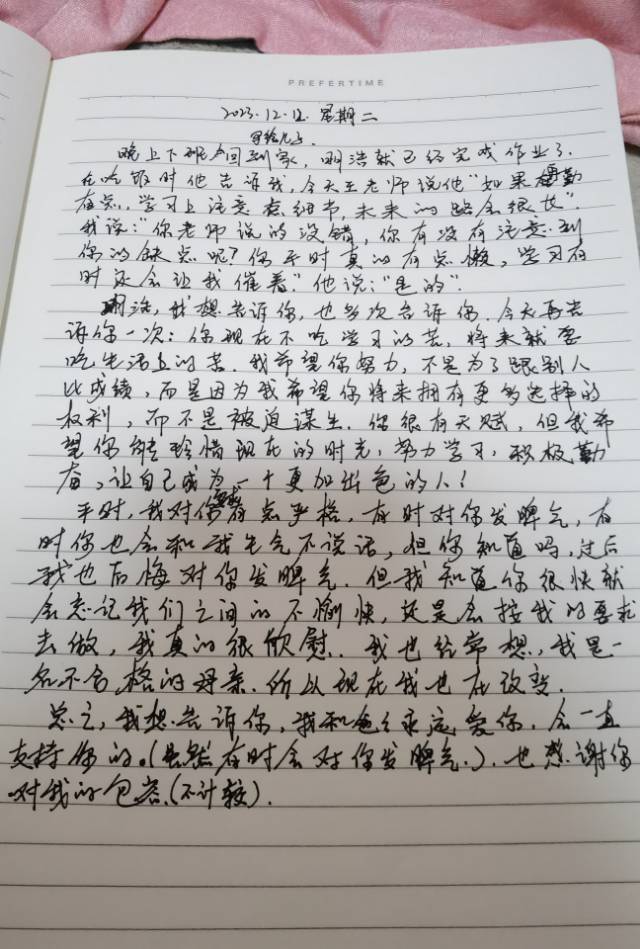 PREFERTIME
2023.12.12. 星期二
写给儿子.
晚上下班回到家，明浩就已经完成作业了.
在吃饭时他告诉我，今天王老师说他“如果勤
奋点，学习上注意点细节，未来的路会很长”.
我说：“你老师说的没错，你有没有注意到
你的缺点呢？你平时真的有点懒，学习有
时还会让我催着.”他说：“是的”.
明浩，我想告诉你，也多次告诉你.今天再告
诉你一次：你现在不吃学习的苦，将来就要
吃生活上的苦.我希望你努力，不是为了跟别人
比成绩，而是因为我希望你将来拥有更多选择的
权利，而不是被迫谋生.你很有天赋，但我希
望你能珍惜现在的时光，努力学习，积极勤
奋，让自己成为一个更加出色的人！
平时，我对你有点严格，有时对你发脾气，有
时你也会和我生气不说话，但你知道吗，过后
我也后悔对你发脾气.但我知道你很快就
会忘记我们之间的不愉快，还是会按我的要求
去做，我真的很欣慰.我也经常想，我是一
名不合格的母亲.所以现在我也在改变.
总之，我想告诉你，我和爸爸永远爱你.会一直
支持你的.（虽然有时会对你发脾气.）.也感谢你
对我的包容.（不计较）.